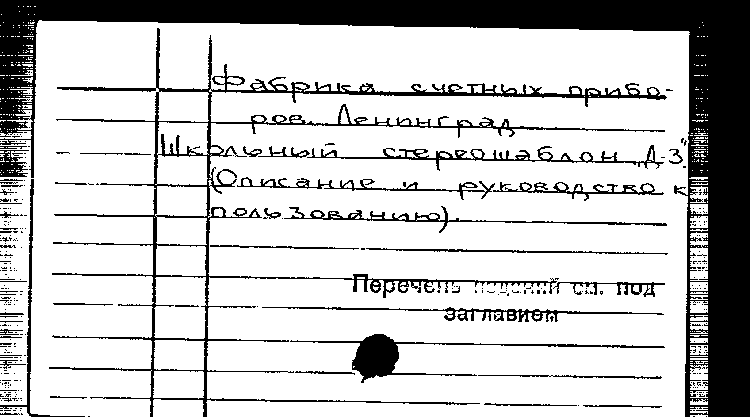 Фабрика счетных прибо-
ров. Ленинград.
Школьный стереошаблон „Д-3".
(Описание и руководство к
пользованию).
Перечень изданий см. под
заглавием